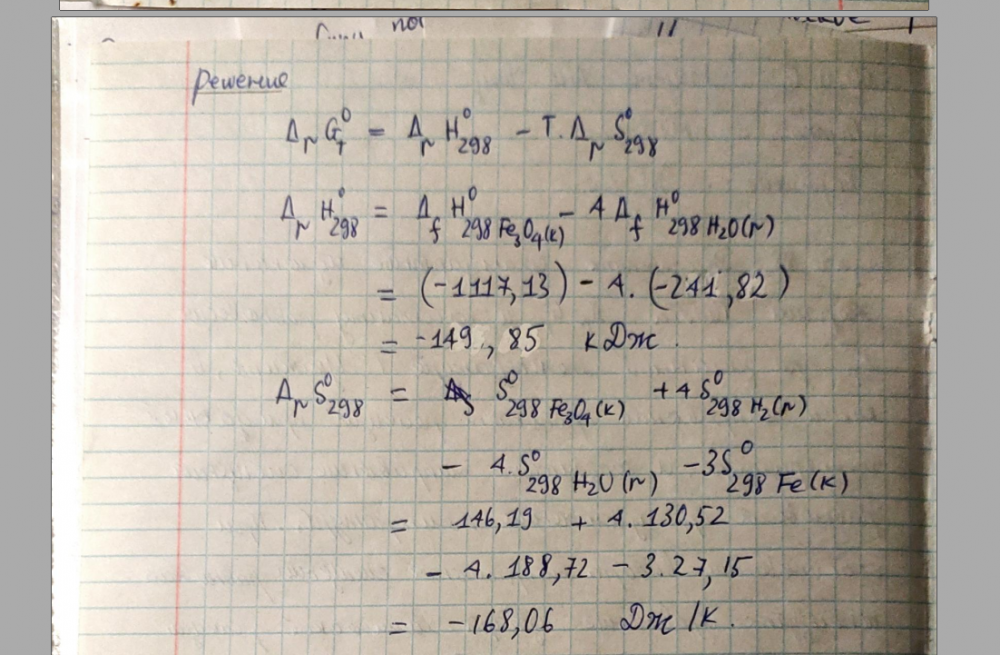 пол
Решение
ΔrG⁰T = ΔrH⁰298 - T.ΔrS⁰298
ΔrH⁰298 = ΔfH⁰298 Fe3O4(к) - 4ΔfH⁰298 H2O(г)
= (-1117,13) - 4.(-241,82)
= -149,85 кДж.
ΔrS⁰298 = S⁰298 Fe3O4(к) + 4S⁰298 H2(г)
- 4.S⁰298 H2O(г) - 3S⁰298 Fe(к)
= 146,19 + 4.130,52
- 4.188,72 - 3.27,15
= -168,06 Дж/к.